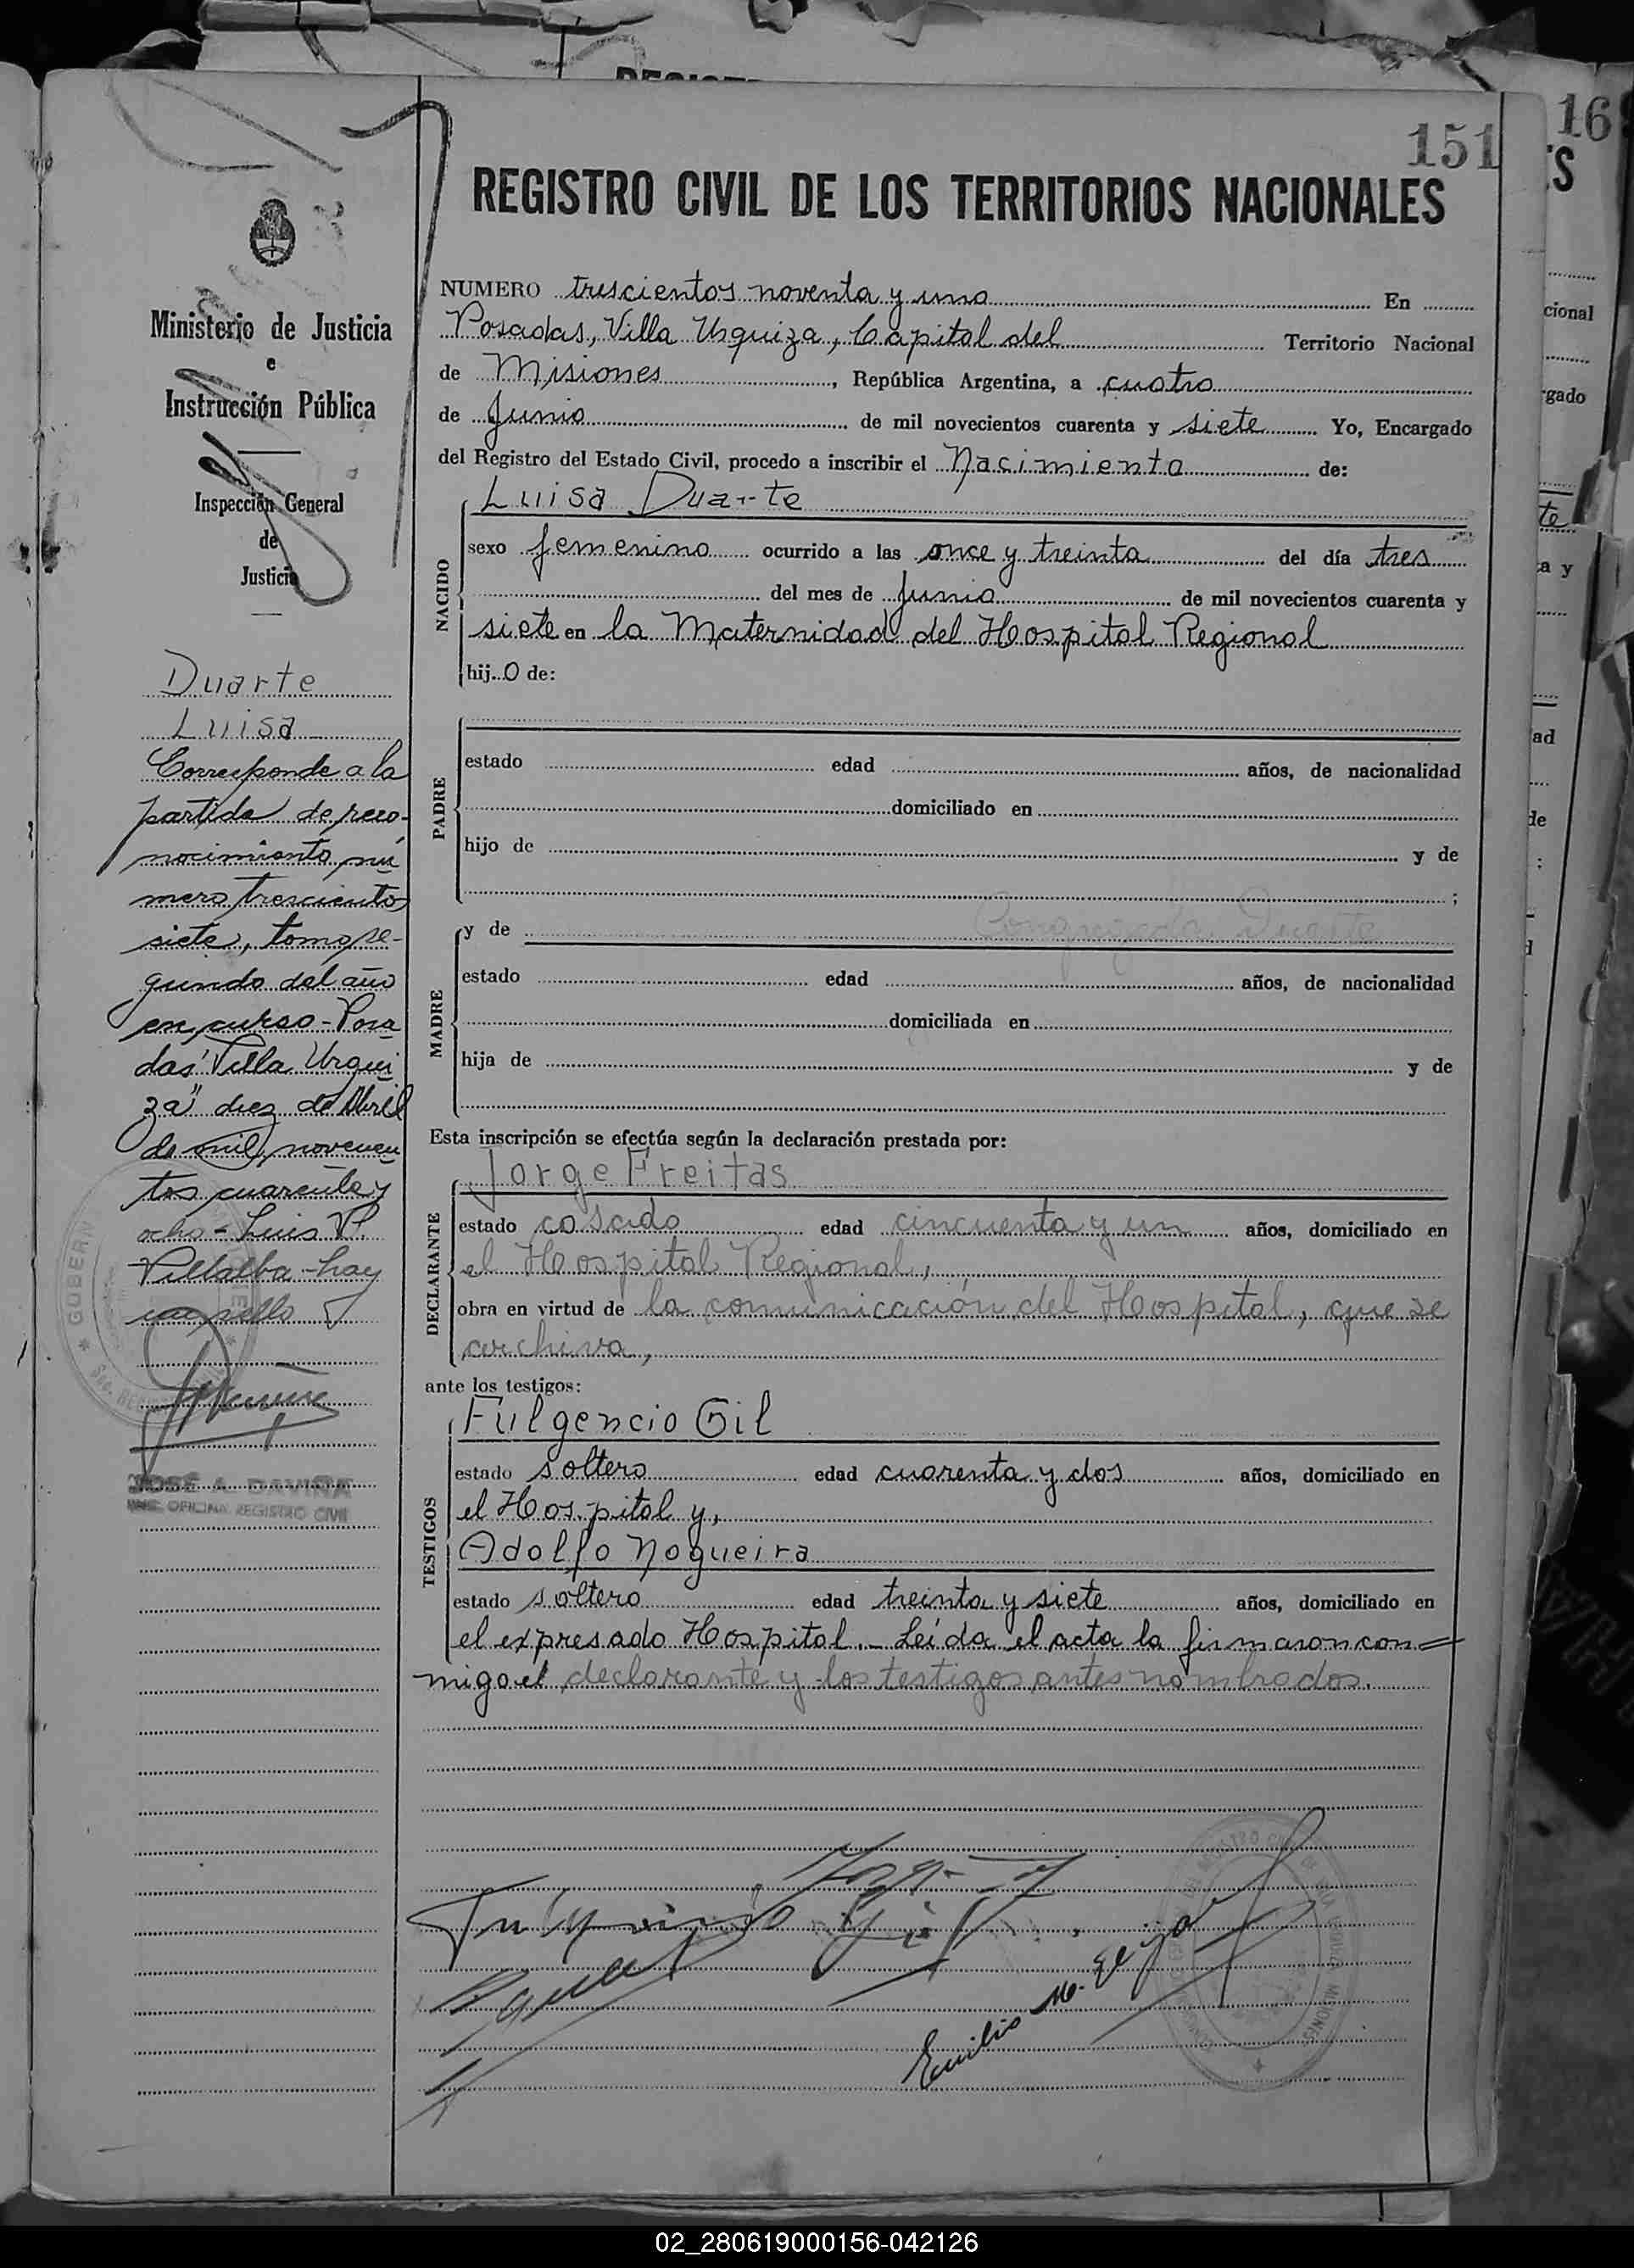 151
16
REGISTRO CIVIL DE LOS TERRITORIOS NACIONALES
Ministerio de Justicia
e
Instrucción Pública
Inspección General
de
Justicia
Duarte
Luisa
Corresponde a la
partida de reco-
nocimiento nú
mero trescientos
siete, tomo se-
gundo del año
en curso - Posa
das "Villa Urqui
za" diez de Abril
de mil novecien
tos cuarenta y
ocho - Luis V.
Villalba - hay
un sello
JOSÉ A. DAVIÑA
OFICINA REGISTRO CIVIL
NUMERO trescientos noventa y uno En
Posadas, Villa Urquiza, Capital del Territorio Nacional
de Misiones, República Argentina, a cuatro
de Junio de mil novecientos cuarenta y siete Yo, Encargado
del Registro del Estado Civil, procedo a inscribir el Nacimiento de:
NACIDO
Luisa Duarte
sexo femenino ocurrido a las once y treinta del día tres
del mes de Junio de mil novecientos cuarenta y
siete en la Maternidad del Hospital Regional
hij O de:
PADRE
estado edad años, de nacionalidad
domiciliado en
hijo de y de
;
MADRE
y de Duarte
estado edad años, de nacionalidad
domiciliada en
hija de y de
Esta inscripción se efectúa según la declaración prestada por:
DECLARANTE
Jorge Freitas
estado casado edad cincuenta y un años, domiciliado en
el Hospital Regional,
obra en virtud de la comunicación del Hospital, que se
archiva,
ante los testigos:
TESTIGOS
Fulgencio Gil
estado soltero edad cuarenta y dos años, domiciliado en
el Hospital y,
Adolfo Nogueira
estado soltero edad treinta y siete años, domiciliado en
el expresado Hospital.- Leída el acta la firmaron con=
migo el declarante y los testigos antes nombrados.
Fulgencio Gil
Emilio M.
02_280619000156-042126